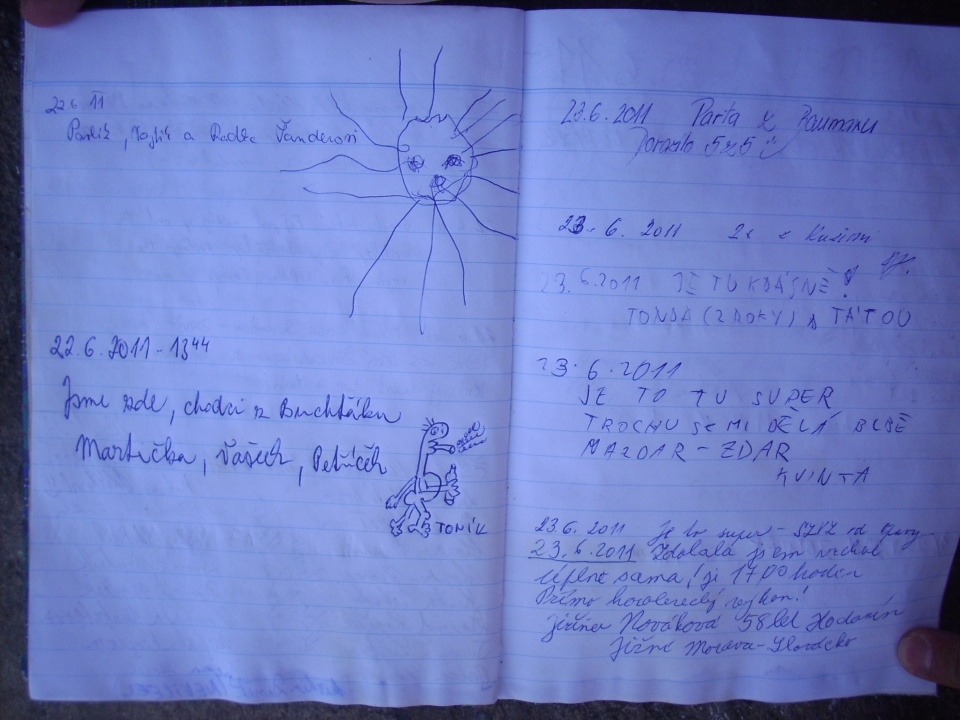 22.6. 11
Pavlík, Vojtík a Radka Vanderovi
22.6.2011 - 13⁴⁴
Jsme zde, chodci z Buchťáku
Martička, Vašech, Petříček
TONÍK
23.6. 2011 Parta z
Dorazilo 5 z 5
23. 6. 2011 2x z Kuřimi
23.6.2011 JE TU KRÁSNĚ!
TONDA (2 ROKY) A TÁTOU
23.6.2011
JE TO TU SUPER
TROCHU SE MI DĚLÁ BLBĚ
NAZDAR - ZDAR
KVINTA
23.6. 2011 je to super -
23.6.2011 Zdolala jsem vrchol
úplně sama! je 17⁰⁰ hodin
Přímo horolezecký výkon!
Jiřina Nováková 58 let Hodonín
Jižní Morava - Slovácko